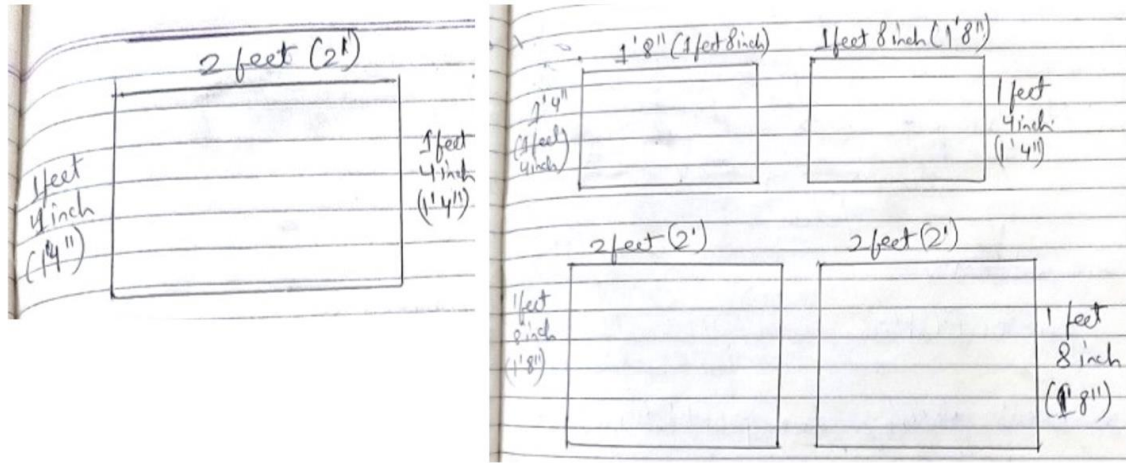 2 feet (2')
1feet
4 inch
(1'4")
1feet
4 inch
(1'4")
1'8" (1feet 8inch)
1feet 8inch (1'8")
1'4"
(1feet
4inch)
1 feet
4inch
(1'4")
2 feet (2')
2 feet (2')
1feet
8inch
(1'8")
1 feet
8 inch
(1'8")